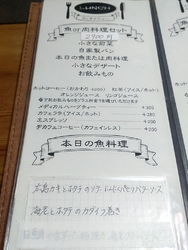 LUNCH
魚or肉料理セット
2700円
小さな前菜
自家製パン
本日の魚または肉料理
小さなデザート
お飲みもの
ホットコーヒー(おかわり +200) 紅茶(アイス・ホット)
オレンジジュース リンゴジュース
メディカルハーブティー +200
カフェラテ(アイス・ホット) +200
エスプレッソ +200
デカフェコーヒー(カフェインレス) +200
本日の魚料理
海老とホタテのカダイフ巻き